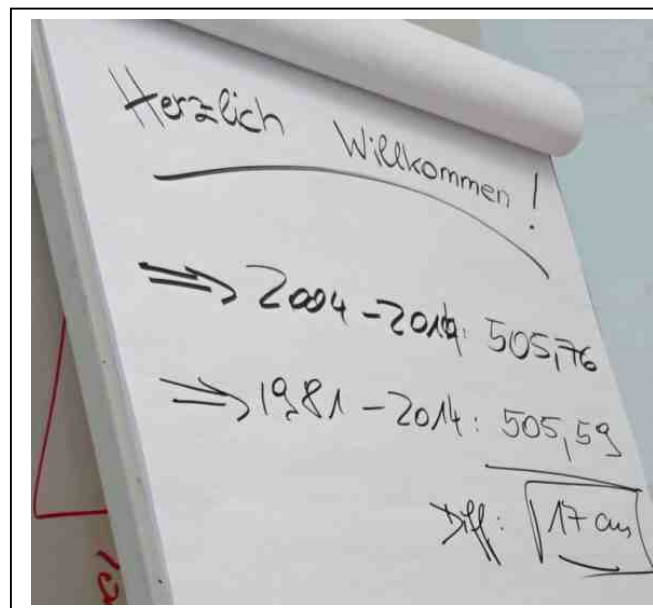 Herzlich Willkommen!
⇒ 2004-2014: 505,76
⇒ 1981-2014: 505,59
Diff: 17 cm